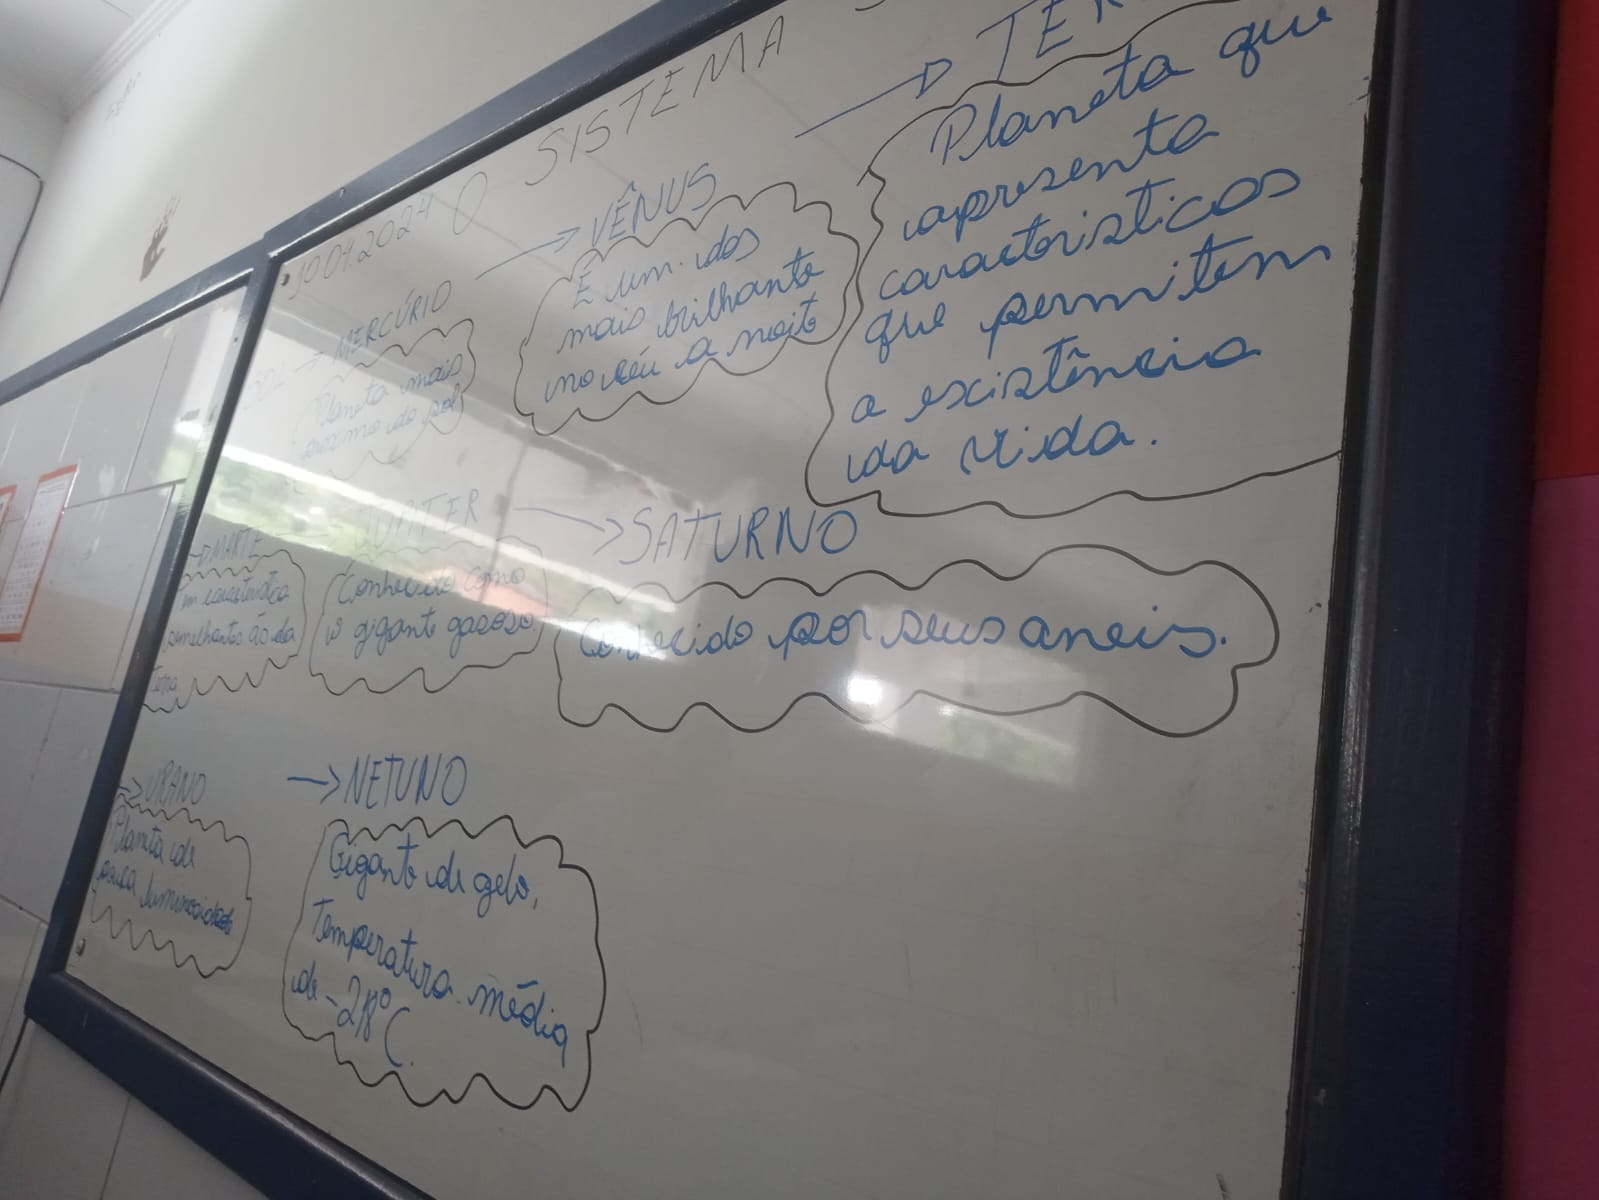 10.04.2024 O SISTEMA
→ MERCÚRIO → VÊNUS →
Planeta mais
próximo do sol
É um dos
mais brilhante
no céu a noite
Planeta que
apresenta
características
que permitem
a existência
da vida.
→ MARTE → JÚPITER → SATURNO
Tem característica
semelhantes ão da
Terra
Conhecido como
o gigante gasoso
Conhecido por seus aneis.
→ URANO → NETUNO
Planeta de
pouca luminosidade
Gigante de gelo,
Temperatura média
de -218°C.